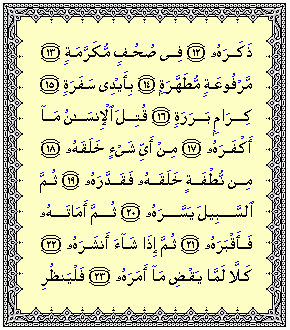 ذَكَرَهُۥ ﴿١٢﴾ فِى صُحُفٍ مُّكَرَّمَةٍ ﴿١٣﴾
مَّرْفُوعَةٍ مُّطَهَّرَةٍۭ ﴿١٤﴾ بِأَيْدِى سَفَرَةٍ ﴿١٥﴾
كِرَامٍۭ بَرَرَةٍ ﴿١٦﴾ قُتِلَ ٱلْإِنسَـٰنُ مَآ
أَكْفَرَهُۥ ﴿١٧﴾ مِنْ أَىِّ شَىْءٍ خَلَقَهُۥ ﴿١٨﴾
مِن نُّطْفَةٍ خَلَقَهُۥ فَقَدَّرَهُۥ ﴿١٩﴾ ثُمَّ
ٱلسَّبِيلَ يَسَّرَهُۥ ﴿٢٠﴾ ثُمَّ أَمَاتَهُۥ
فَأَقْبَرَهُۥ ﴿٢١﴾ ثُمَّ إِذَا شَآءَ أَنشَرَهُۥ ﴿٢٢﴾
كَلَّا لَمَّا يَقْضِ مَآ أَمَرَهُۥ ﴿٢٣﴾ فَلْيَنظُرِ